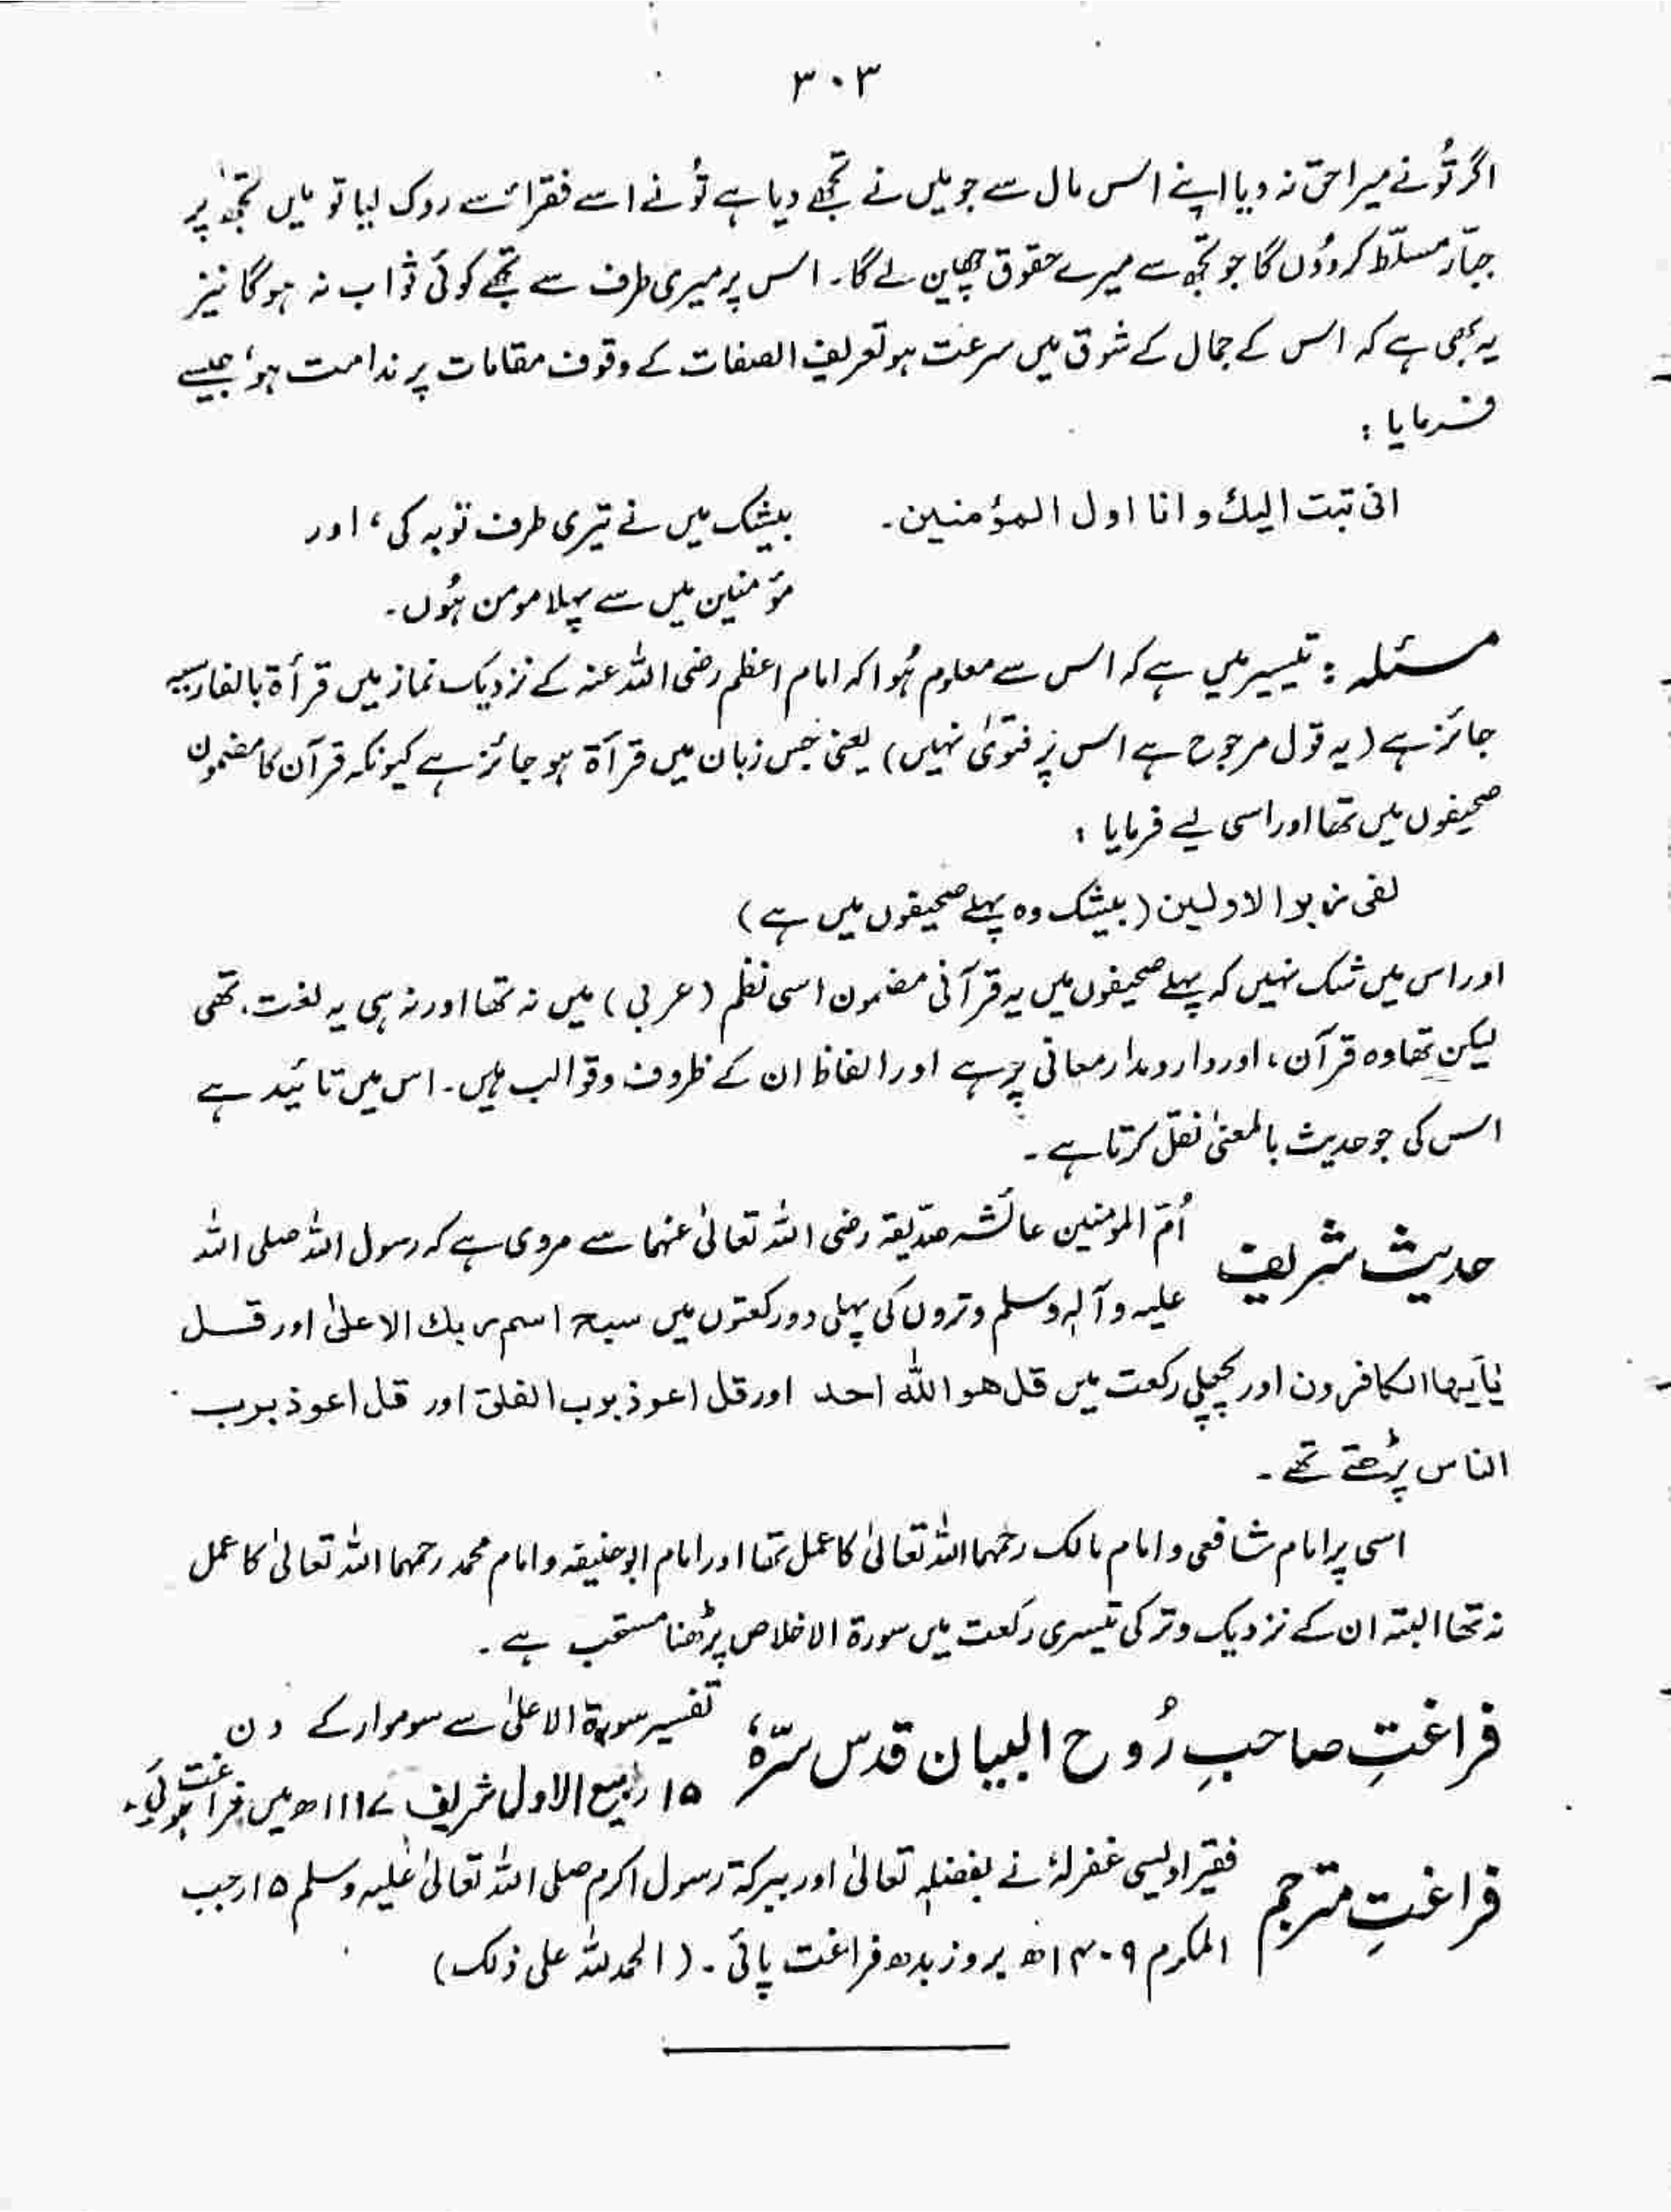 ۳۰۳
اگر تُو نے میرا حق نہ دیا اپنے اس مال سے جو میں نے تجھے دیا ہے تُو نے اسے فقرا سے روک لیا تو میں تجھ پر
جبّار مسلّط کر دوُں گا جو تجھ سے میرے حقوق چھین لے گا۔ اس پر میری طرف سے تجھے کوئی ثواب نہ ہوگا نیز
یہ بھی ہے کہ اس کے جمال کے شوق میں سرعت ہو تعریف الصفات کے وقوف مقامات پر ندامت ہو، جیسے
فرمایا :
انی تبت الیك و انا اول المؤمنین۔ بیشک میں نے تیری طرف توبہ کی، اور
مؤمنین میں سے پہلا مومن ہُوں۔
مسئلہ : تیسیر میں ہے کہ اس سے معلوم ہُوا کہ امام اعظم رضی اللہ عنہ کے نزدیک نماز میں قرأۃ بالفارسیہ
جائز ہے (یہ قول مرجوح ہے اس پر فتویٰ نہیں) یعنی جس زبان میں قرآۃ ہو جائز ہے کیونکہ قرآن کا مضمون
صحیفوں میں تھا اور اسی لیے فرمایا :
لفی زبر الاولین (بیشک وہ پہلے صحیفوں میں ہے)
اور اس میں شک نہیں کہ پہلے صحیفوں میں یہ قرآنی مضمون اسی نظم (عربی) میں نہ تھا اور نہ ہی یہ لغت تھی
لیکن تھا وہ قرآن، اور دارومدار معانی پر ہے اور الفاظ ان کے ظروف و قوالب ہیں۔ اس میں تائید ہے
اس کی جو حدیث بالمعنیٰ نقل کرتا ہے۔
حدیث شریف اُمّ المومنین عائشہ صدّیقہ رضی اللہ تعالیٰ عنہما سے مروی ہے کہ رسول اللہ صلی اللہ
علیہ وآلہٖ وسلم وتروں کی پہلی دو رکعتوں میں سبح اسم ربك الاعلیٰ اور قل
یٰاَیہا الکافرون اور پچھلی رکعت میں قل ھو اللہ احد اور قل اعوذ برب الفلق اور قل اعوذ برب
الناس پڑھتے تھے۔
اسی پر امام شافعی و امام مالک رحمہما اللہ تعالیٰ کا عمل تھا اور امام ابوحنیفہ و امام محمد رحمہما اللہ تعالیٰ کا عمل
نہ تھا البتہ ان کے نزدیک وتر کی تیسری رکعت میں سورۃ الاخلاص پڑھنا مستحب ہے۔
فراغتِ صاحبِ رُوح البیان قدس سرّہٗ تفسیر سورۃ الاعلیٰ سے سوموار کے دن
۱۵ ربیع الاول شریف ۱۱۱۷ھ میں فراغت ہوئی۔
فراغتِ مترجم فقیر اویسی غفرلہٗ نے بفضلہٖ تعالیٰ اور ببرکۃ رسول اکرم صلی اللہ تعالیٰ علیہ وسلم ۱۵ رجب
المکرم ۱۴۰۹ھ بروز بدھ فراغت پائی۔ (الحمد للہ علی ذلک)